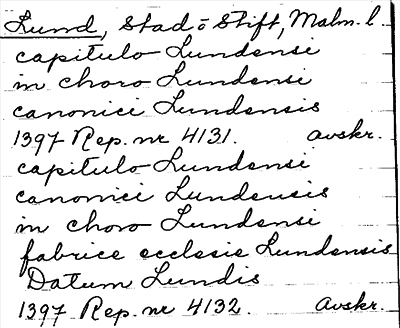 Lund, Stad o Stift, Malm. l.
capitulo Lundensi
in choro Lundensi
canonici Lundensis
1397 Rep. nr 4131. avskr.
capitulo Lundensi
canonici Lundensis
in choro Lundensi
fabrice ecclesie Lundensis
Datum Lundis
1397 Rep. nr 4132. avskr.